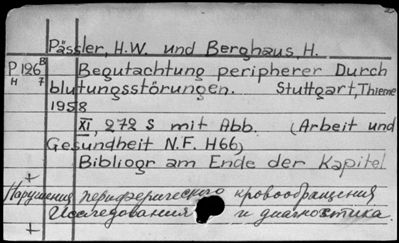 Pässler, H.W. und Berghaus, H.
P 126 B Begutachtung peripherer Durch
H 7 blutungsstörungen. Stuttgart, Thieme
1958
XI, 272 S mit Abb. (Arbeit und
Gesundheit N.F. H66)
Bibliogr am Ende der Kapitel
+
Нарушения периферического кровообращения
+ Исследования и диагностика.